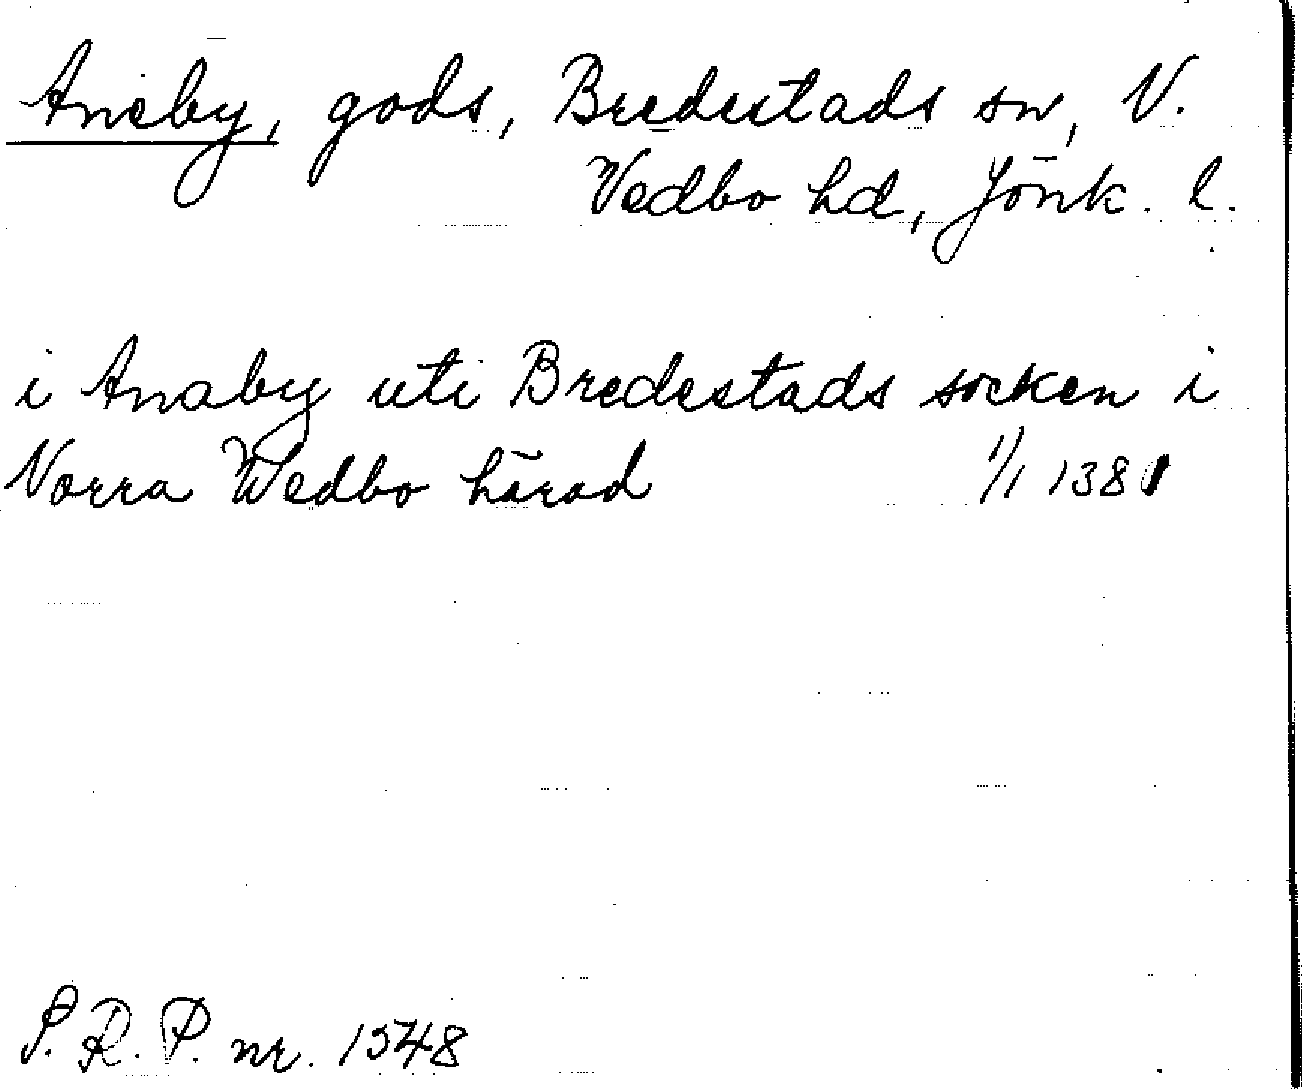 Aneby, gods, Bredestads sn, N.
Vedbo hd, Jönk. l.
i Anaby uti Bredestads socken i
Norra Wedbo härad 1/1 1381
S.R.P. nr. 1548